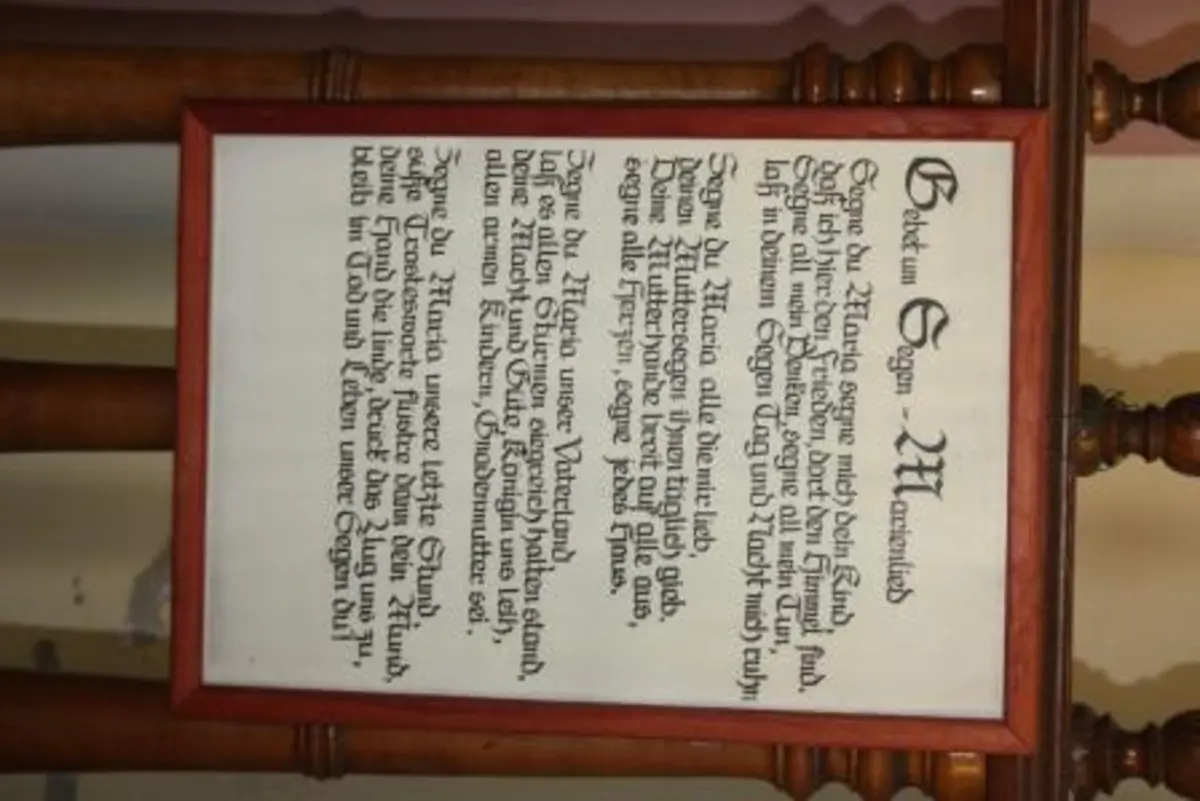 Gebet um Segen - Marienlied
Segne du Maria segne mich dein Kind
daß ich hier den Frieden, dort den Himmel find.
Segne all mein Denken, segne all mein Tun,
laß in deinem Segen Tag und Nacht mich ruhn
Segne du Maria alle die mir lieb,
deinen Muttersegen ihnen täglich gieb.
Deine Mutterhände breit auf alle aus,
segne alle Herzen, segne jedes Haus.
Segne du Maria unser Vaterland
laß es allen Stürmen siegreich halten stand,
deine Macht und Güte, Königin uns leih,
allen armen Kindern, Gnadenmutter sei.
Segne du Maria unsere letzte Stund.
süße Trostesworte flüstre dann dein Mund,
deine Hand die linde, drück das Aug uns zu,
bleib im Tod und Leben unser Segen du!